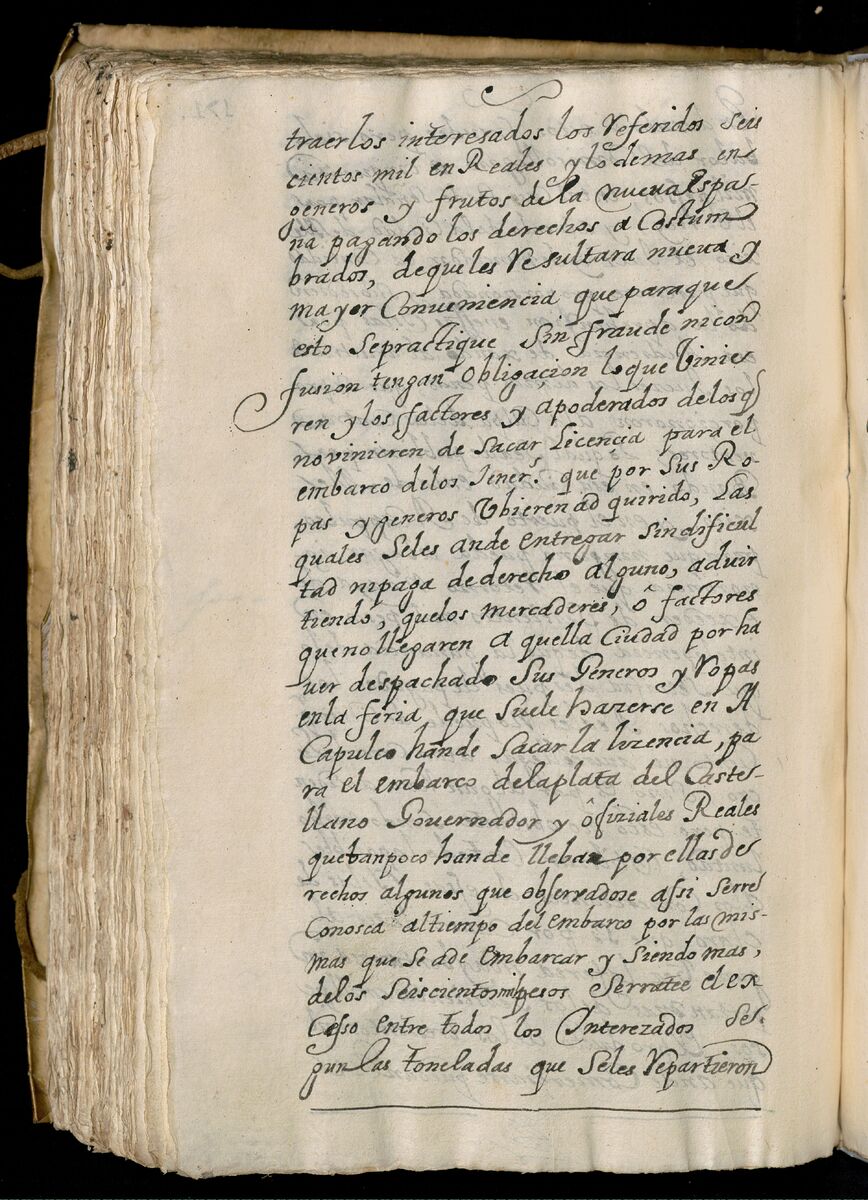 traerlos interesados los referidos seis
cientos mil en Reales y lo demas en
generos y frutos de la nueva Espa-
ña pagando los derechos a Costum
brados, de que les resultara nueva y
mayor Conveniencia que para que
esto se practique Sin fraude ni con
fusion tengan obligacion lo que Vinie
ren y los factores y apoderados de los q
no vinieren de sacar Licencia para el
embarco de los Jener.s que por sus Ro-
pas y generos Ubieren ad quirido, Las
quales Seles ande entregar sin dificul
tad ni paga de derecho alguno, advir
tiendo, que los mercaderes, ô factores
que no llegaren a quella Ciudad por ha
ver despachado sus Generos y ropas
en la feria que suele hazerse en A
Capulco han de sacar la lizencia, pa
ra el embarco de la plata del Caste-
llano Governador y ôfiziales Reales
que tanpoco han de llebar por ellas de
rechos algunos que observadose assi serre
Conosca al tiempo del embarco por las mis-
mas que se ade embarcar y siendo mas,
de los seiscientos mil pesos Serratee el ex
Cesso entre todos los Interezados se-
gun las toneladas que seles repartieron